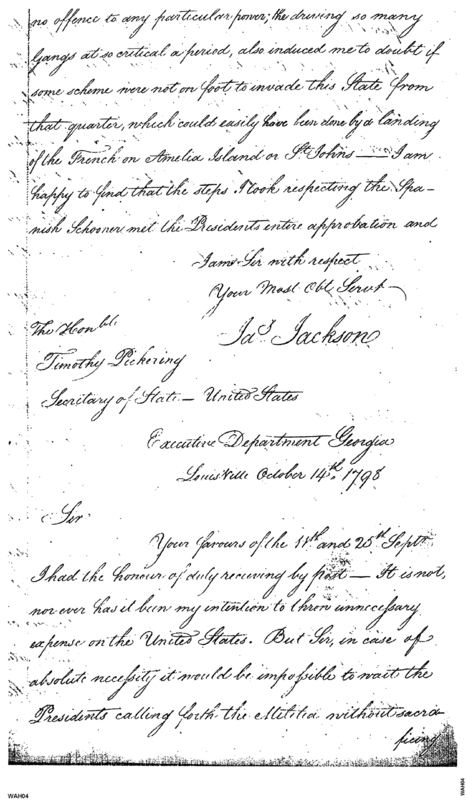 no offence to any particular power; the driving so many
Gangs at so critical a period, also induced me to doubt if
some scheme were not on foot to invade this State from
that quarter, which could easily have been done by a landing
of the French on Amelia Island or St Johns — I am
happy to find that the steps I took respecting the Spa-
nish Schooner met the Presidents entire approbation and
I am Sir with respect
Your Most Obt Servt
Jas Jackson
The Honble
Timothy Pickering
Secretary of State — United States
Executive Department Georgia
Louisville October 14th 1798
Sir
Your favours of the 11th and 25th Septr
I had the honour of duly receiving by post — It is not,
nor ever has it been my intention to throw unnecessary
expense on the United States. But Sir, in case of
absolute necessity it would be impossible to wait the
Presidents calling forth the Militia without sacri-
ficing
WAH04
WAH04